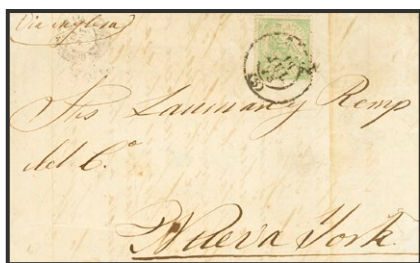 Via inglesa
Sres Lanman y Kemp
del C.º
Nueva York